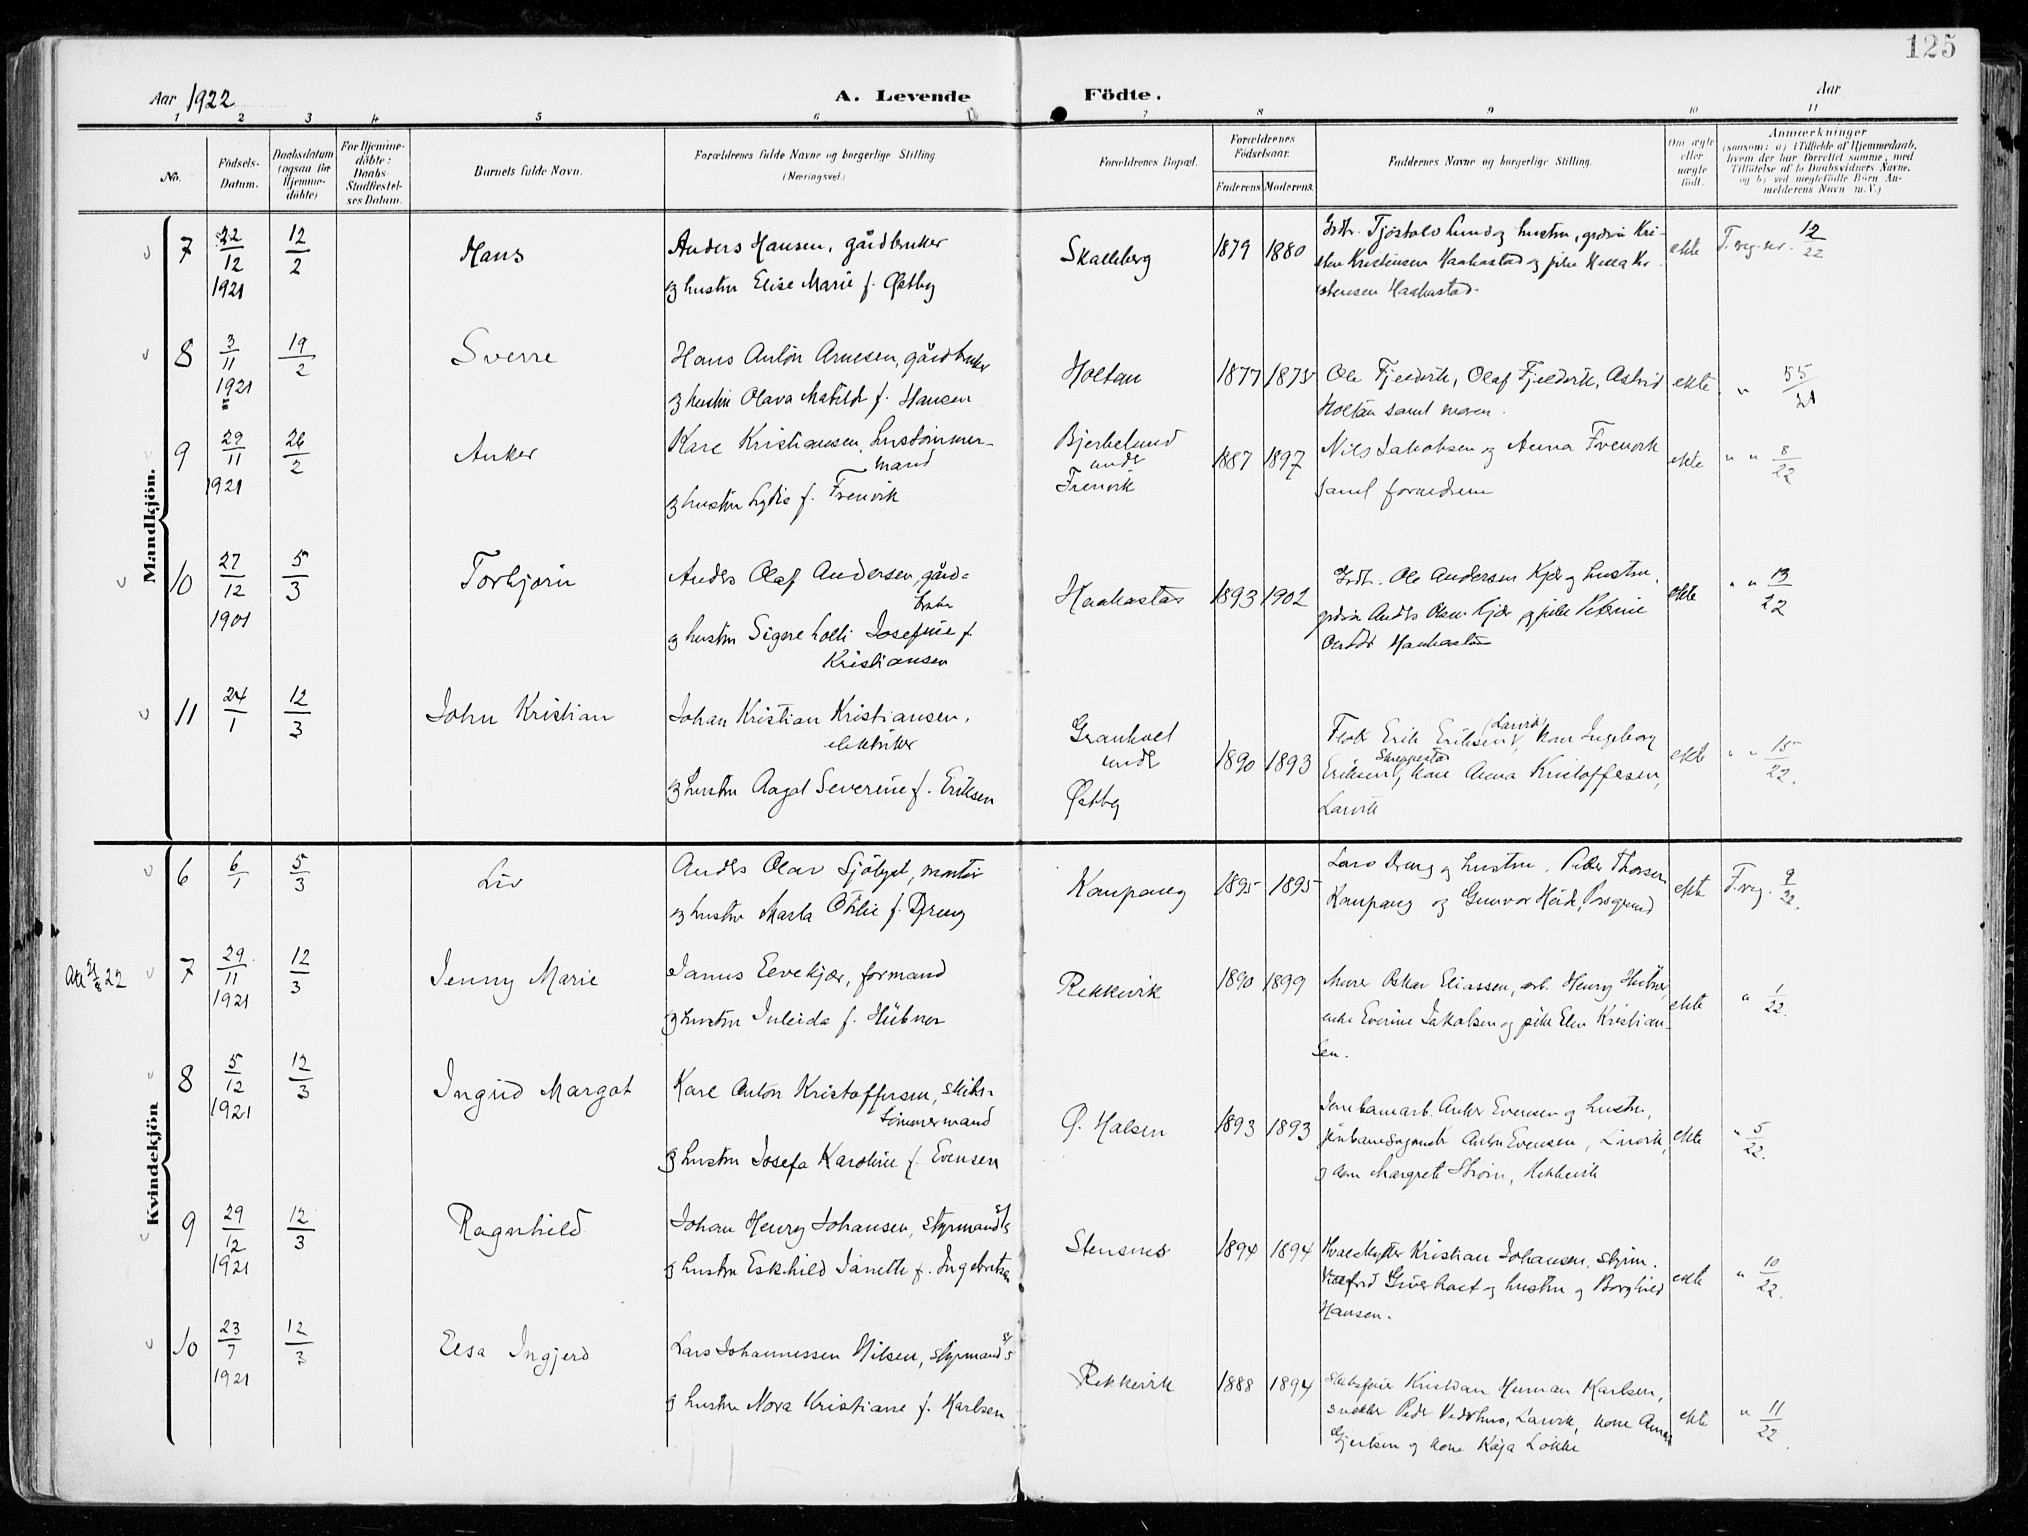 125
Aar 1922
A. Levende Födte.
Aar
1 2 3 4 5 6 7 8 9 10 11
No.
Födsels-Datum.
Daabsdatum (ogsaa for Hjemme-döbte)
For Hjemme-döbte: Daabs-Stadfæstel-ses Datum.
Barnets fulde Navn.
Forældrenes fulde Navne og borgerlige Stilling (Næringsvei.)
Forældrenes Bopæl.
Forældrenes Födselsaar.
Faderens. Moderens.
Faddernes Navne og borgerlige Stilling.
Om ægte eller uægte födt.
Anmærkninger
(saasom: a) i Tilfælde af Hjemmedaab,
hvem der har forrettet samme, med
Tilföielse af to Daabsvidners Navne,
og b) ved uægtefödte Börn An-
melderens Navn m. V.)
Mandkjön.
7 22/12 1921 12/2 Hans
Anders Hansen, gårdbruker
og hustru Elise Marie f. Østby
Skalleberg 1879 1880
Tjøstolv Lund og hustru, Kri-
Kristensen Haakastad og pike Kr-
stensen Haakastad.
ekte F. reg. nr. 12/22
8 3/11 1921 19/2 Sverre
Hans Anton Arnesen, gårdbruker
og hustru Olava Matilde f. Hansen
Holtan 1877 1875
Ole Fjeldvik, Olaf Fjeldvik, Astrid
Holtan samt moren.
ekte " 55/21
9 29/11 1921 26/2 Anker
Karl Kristiansen, hustømmer-
mand
og hustru Lydia f. Frenvik
Bjerkelund
under
Frenvik
1887 1897
Nils Jakobsen og Anna Frenvik
samt foreldrene
ekte " " 8/22
10 27/12 1901 5/3 Torbjørn
Anders Olaf Andersen, gård-
bruker
og hustru Signe Lolli Josefine f.
Kristiansen
Haakastad 1893 1902
Ole Andersen Kjær og hustru,
Anders Olsen Kjær og pike Petrine
Haakestad
ekte " " 13/22
11 24/1 12/3 John Kristian
Johan Kristian Kristiansen,
elektriker
og hustru Aagot Severine f. Eriksen
Granholt
under
Østby
1890 1893
Erik Eriksen, Larvik, kone Ingeborg
Eriksen, Skreppestad, kone Anna Kristoffersen,
Larvik
ekte " " 15/22.
Kvindekjön
6 6/1 5/3 Liv
Anders Olav Sjølyst, montør
og hustru Marta Otilie f. Dreng
Kaupang 1895 1895
Lars Dreng og hustru, Peder Thorsen
Kaupang og Gunvor Heide, Porsgrund
ekte F. reg. 9/22.
7 29/11 1921 12/3 Jenny Marie
Janus Elvekjær, formand
og hustru Juleida f. Hübner
Rekkevik 1890 1899
Murer Oskar Eliassen, arb. Henry Hübner,
enke Everine Jakobsen og pike Elen Kristian-
sen.
ekte " 1/22.
8 5/12 1921 12/3 Ingrid Margot
Karl Anton Kristoffersen, skibs-
tømmermand
og hustru Josefa Karoline f. Evensen
Ø. Halsen 1893 1893
Jernbanearb. Anker Evensen og hustru,
Anton Evensen, Larvik,
og Margrete Strøm, Rekkevik
ekte " 5/22.
9 29/12 1921 12/3 Ragnhild
Johan Henry Johansen, styrmand
og hustru Eskhild Janette f. Ingebretsen
Stensnes 1894 1894
Hvalskytter Kristian Johansen, styrm.
og hustru og Borghild
Hansen.
ekte " 10/22.
10 23/7 1921 12/3 Elsa Ingjerd
Lars Johannessen Nilsen, styrmand
og hustru Nora Kristiane f. Karlsen
Rekkevik 1888 1894
Kristian Herman Karlsen,
snekker Peder Vederhus, Larvik, kone Anna
Gjertsen og kone Kaja Løkke
ekte " 11/22